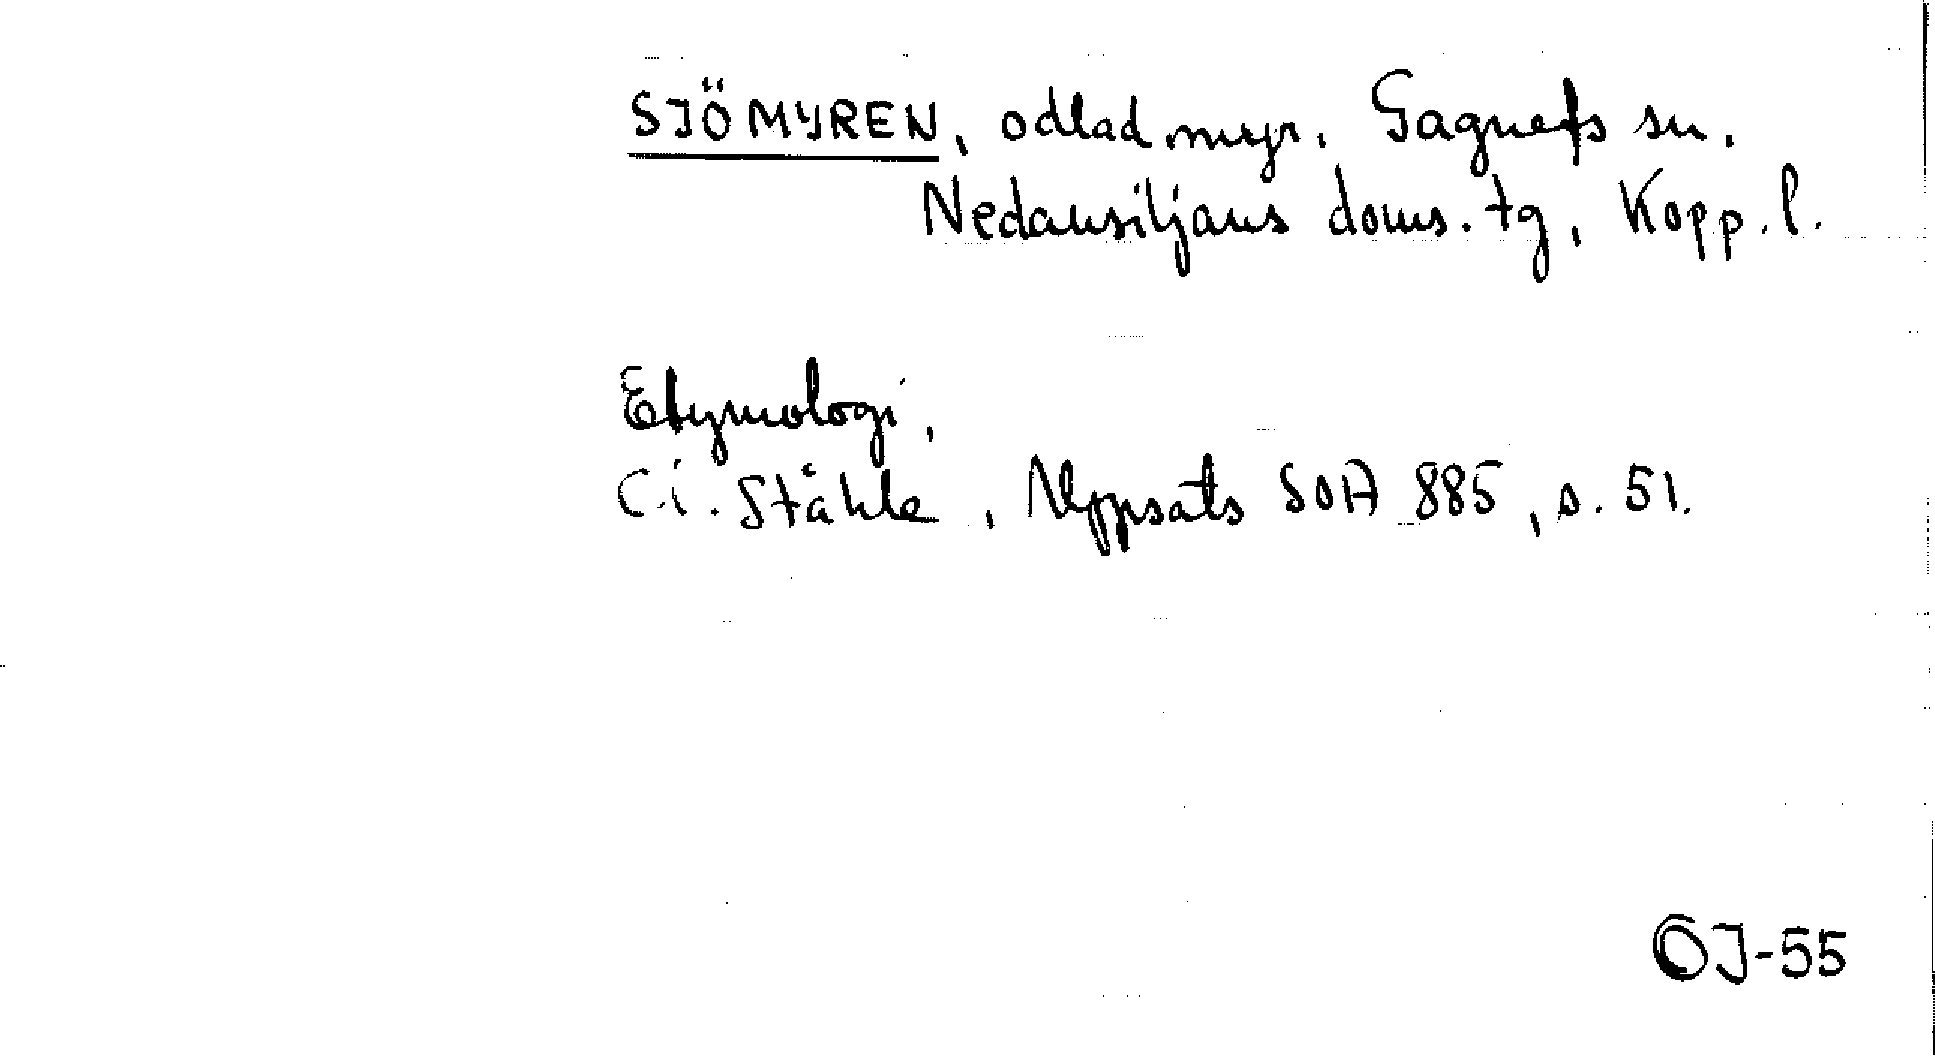 SJÖMYREN, odlad myr. Gagnefs sn.
Nedansiljans doms. tg, Kopp. l.
Etymologi,
C.i. Ståhle, Uppsats SOA 885, s. 51.
OJ-55